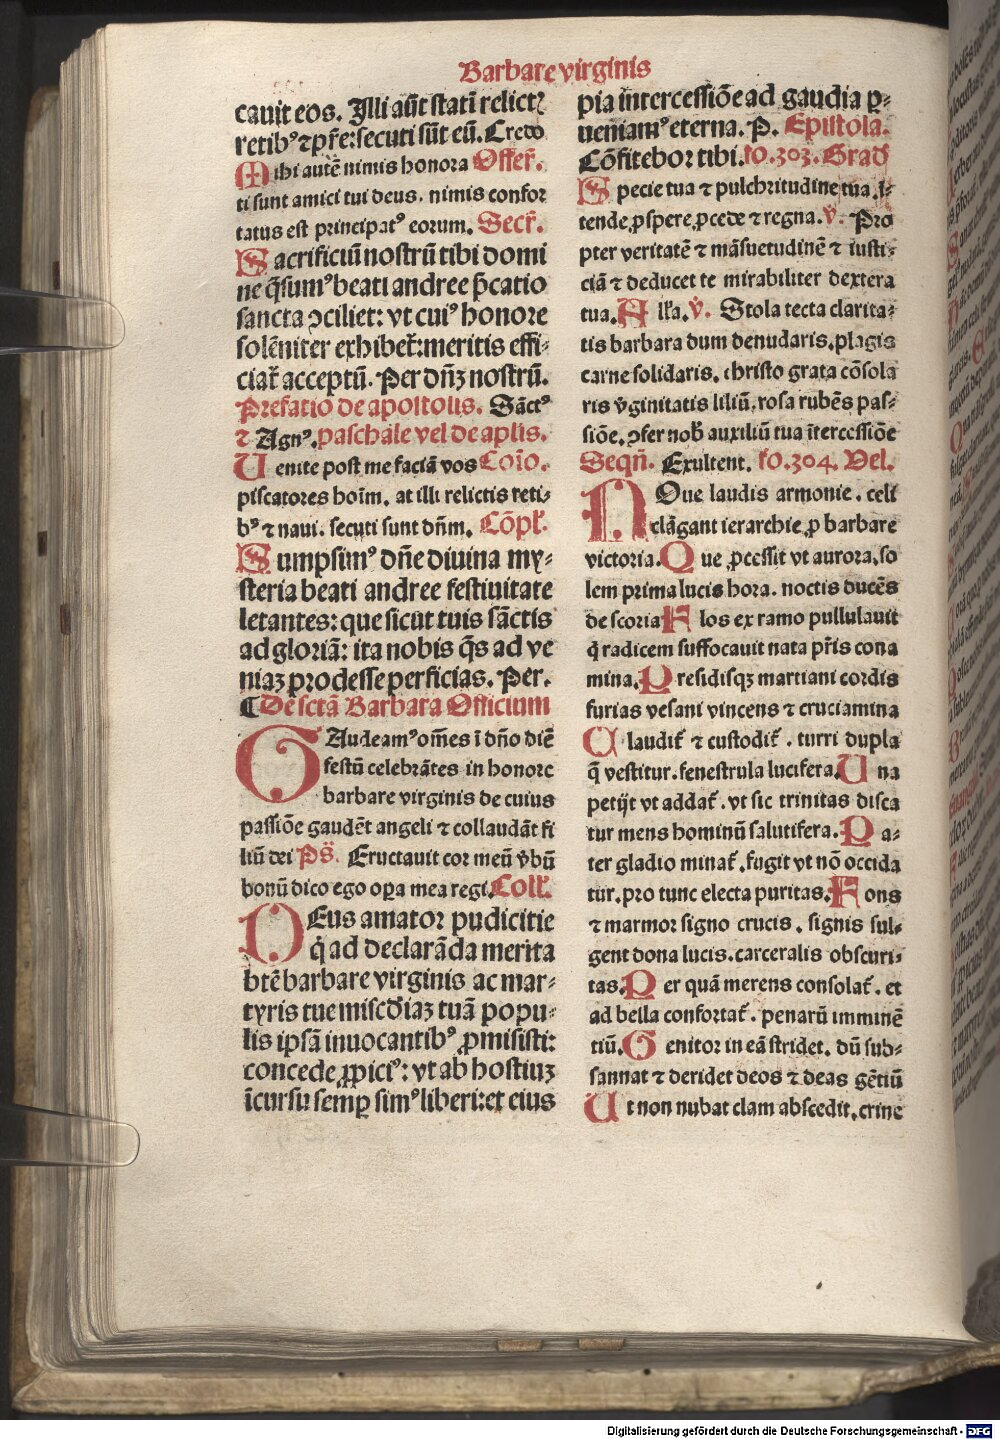 Barbare virginis
cauit eos. Illi aūt statī relictꝫ
retibꝰ ⁊ pr̄e: secuti sūt eū. Credo
Mihi autē nimis honora Offer̄.
ti sunt amici tui deus. nimis confor
tatus est principatꝰ eorum. Secr̄.
Sacrificiū nostrū tibi domi
ne q̄sumꝰ beati andree p̄catio
sancta ↄciliet: vt cuiꝰ honore
solēniter exhibet̄: meritis effi⸗
ciat̄ acceptū. Per dn̄ꝫ nostrū.
Prefatio de apostolis. Sāctꝰ
⁊ Agnꝰ. paschale vel de aplis.
Uenite post me faciā vos Coīo.
piscatores hoīm. at illi relictis reti⸗
bꝰ ⁊ naui. secuti sunt dn̄m. Cōpl̄.
Sumpsimꝰ dn̄e diuina my⸗
steria beati andree festiuitate
letantes: que sicut tuis sāctis
ad gloriā: ita nobis q̄s ad ve
niaꝫ prodesse perficias. Per.
¶ De sctā Barbara Officium
GAudeamꝰ om̄es ī dn̄o diē
festū celebrātes in honore
barbare virginis de cuius
passiōe gaudēt angeli ⁊ collaudāt fi
liū dei Ps̄. Eructauit cor meū v̄bū
bonū dico ego oꝑa mea regi. Coll̄.
DEus amator pudicitie
q̇ ad declarāda merita
btē barbare virginis ac mar⸗
tyris tue miscd̄iaꝫ tuā popu⸗
lis ipsā inuocantibꝰ ꝓmisisti:
concede ꝓpiciꝰ: vt ab hostiuꝫ
īcursu semꝑ simꝰ liberi: et eius
pia intercessiōe ad gaudia ꝑ⸗
ueniamꝰ eterna. P. Epistola.
Cōfitebor tibi. fo. 303. Grad̄
Specie tua ⁊ pulchritudine tua. ī⸗
tende ꝓspere ꝓcede ⁊ regna. v̄. Pro
pter veritatē ⁊ māsuetudinē ⁊ iusti⸗
ciā ⁊ deducet te mirabiliter dextera
tua. All̄a. v̄. Stola tecta clarita⸗
tis barbara dum denudaris. plagis
carne solidaris. christo grata cōsola
ris v̄ginitatis liliū. rosa rubēs pas⸗
siōe. ↄfer nob̄ auxiliū tua ītercessiōe
Seqn̄. Exultent. fo. 304. Vel.
NOue laudis armonie. celi
clāgant ierarchie ꝓ barbare
victoria. Que ꝓcessit vt aurora. so
lem prima lucis hora. noctis ducēs
de scoria Flos ex ramo pullulauit
q̇ radicem suffocauit nata pr̄is cona
mina. Presidisqꝫ martiani cordis
furias vesani vincens ⁊ cruciamina
Claudit̄ ⁊ custodit̄. turri dupla
q̄ vestitur. fenestrula lucifera. Una
petijt vt addat̄. vt sic trinitas disca
tur mens hominū salutifera. Pa⸗
ter gladio minat̄. fugit vt nō occida
tur. pro tunc electa puritas. Fons
⁊ marmor signo crucis. signis ful⸗
gent dona lucis. carceralis obscuri⸗
tas. Per quā merens consolat̄. et
ad bella confortat̄. penarū imminē
tiū. Genitor in eā stridet. dū sub⸗
sannat ⁊ deridet deos ⁊ deas gētiū
Ut non nubat clam abscedit. crine
Digitalisierung gefördert durch die Deutsche Forschungsgemeinschaft - DFG